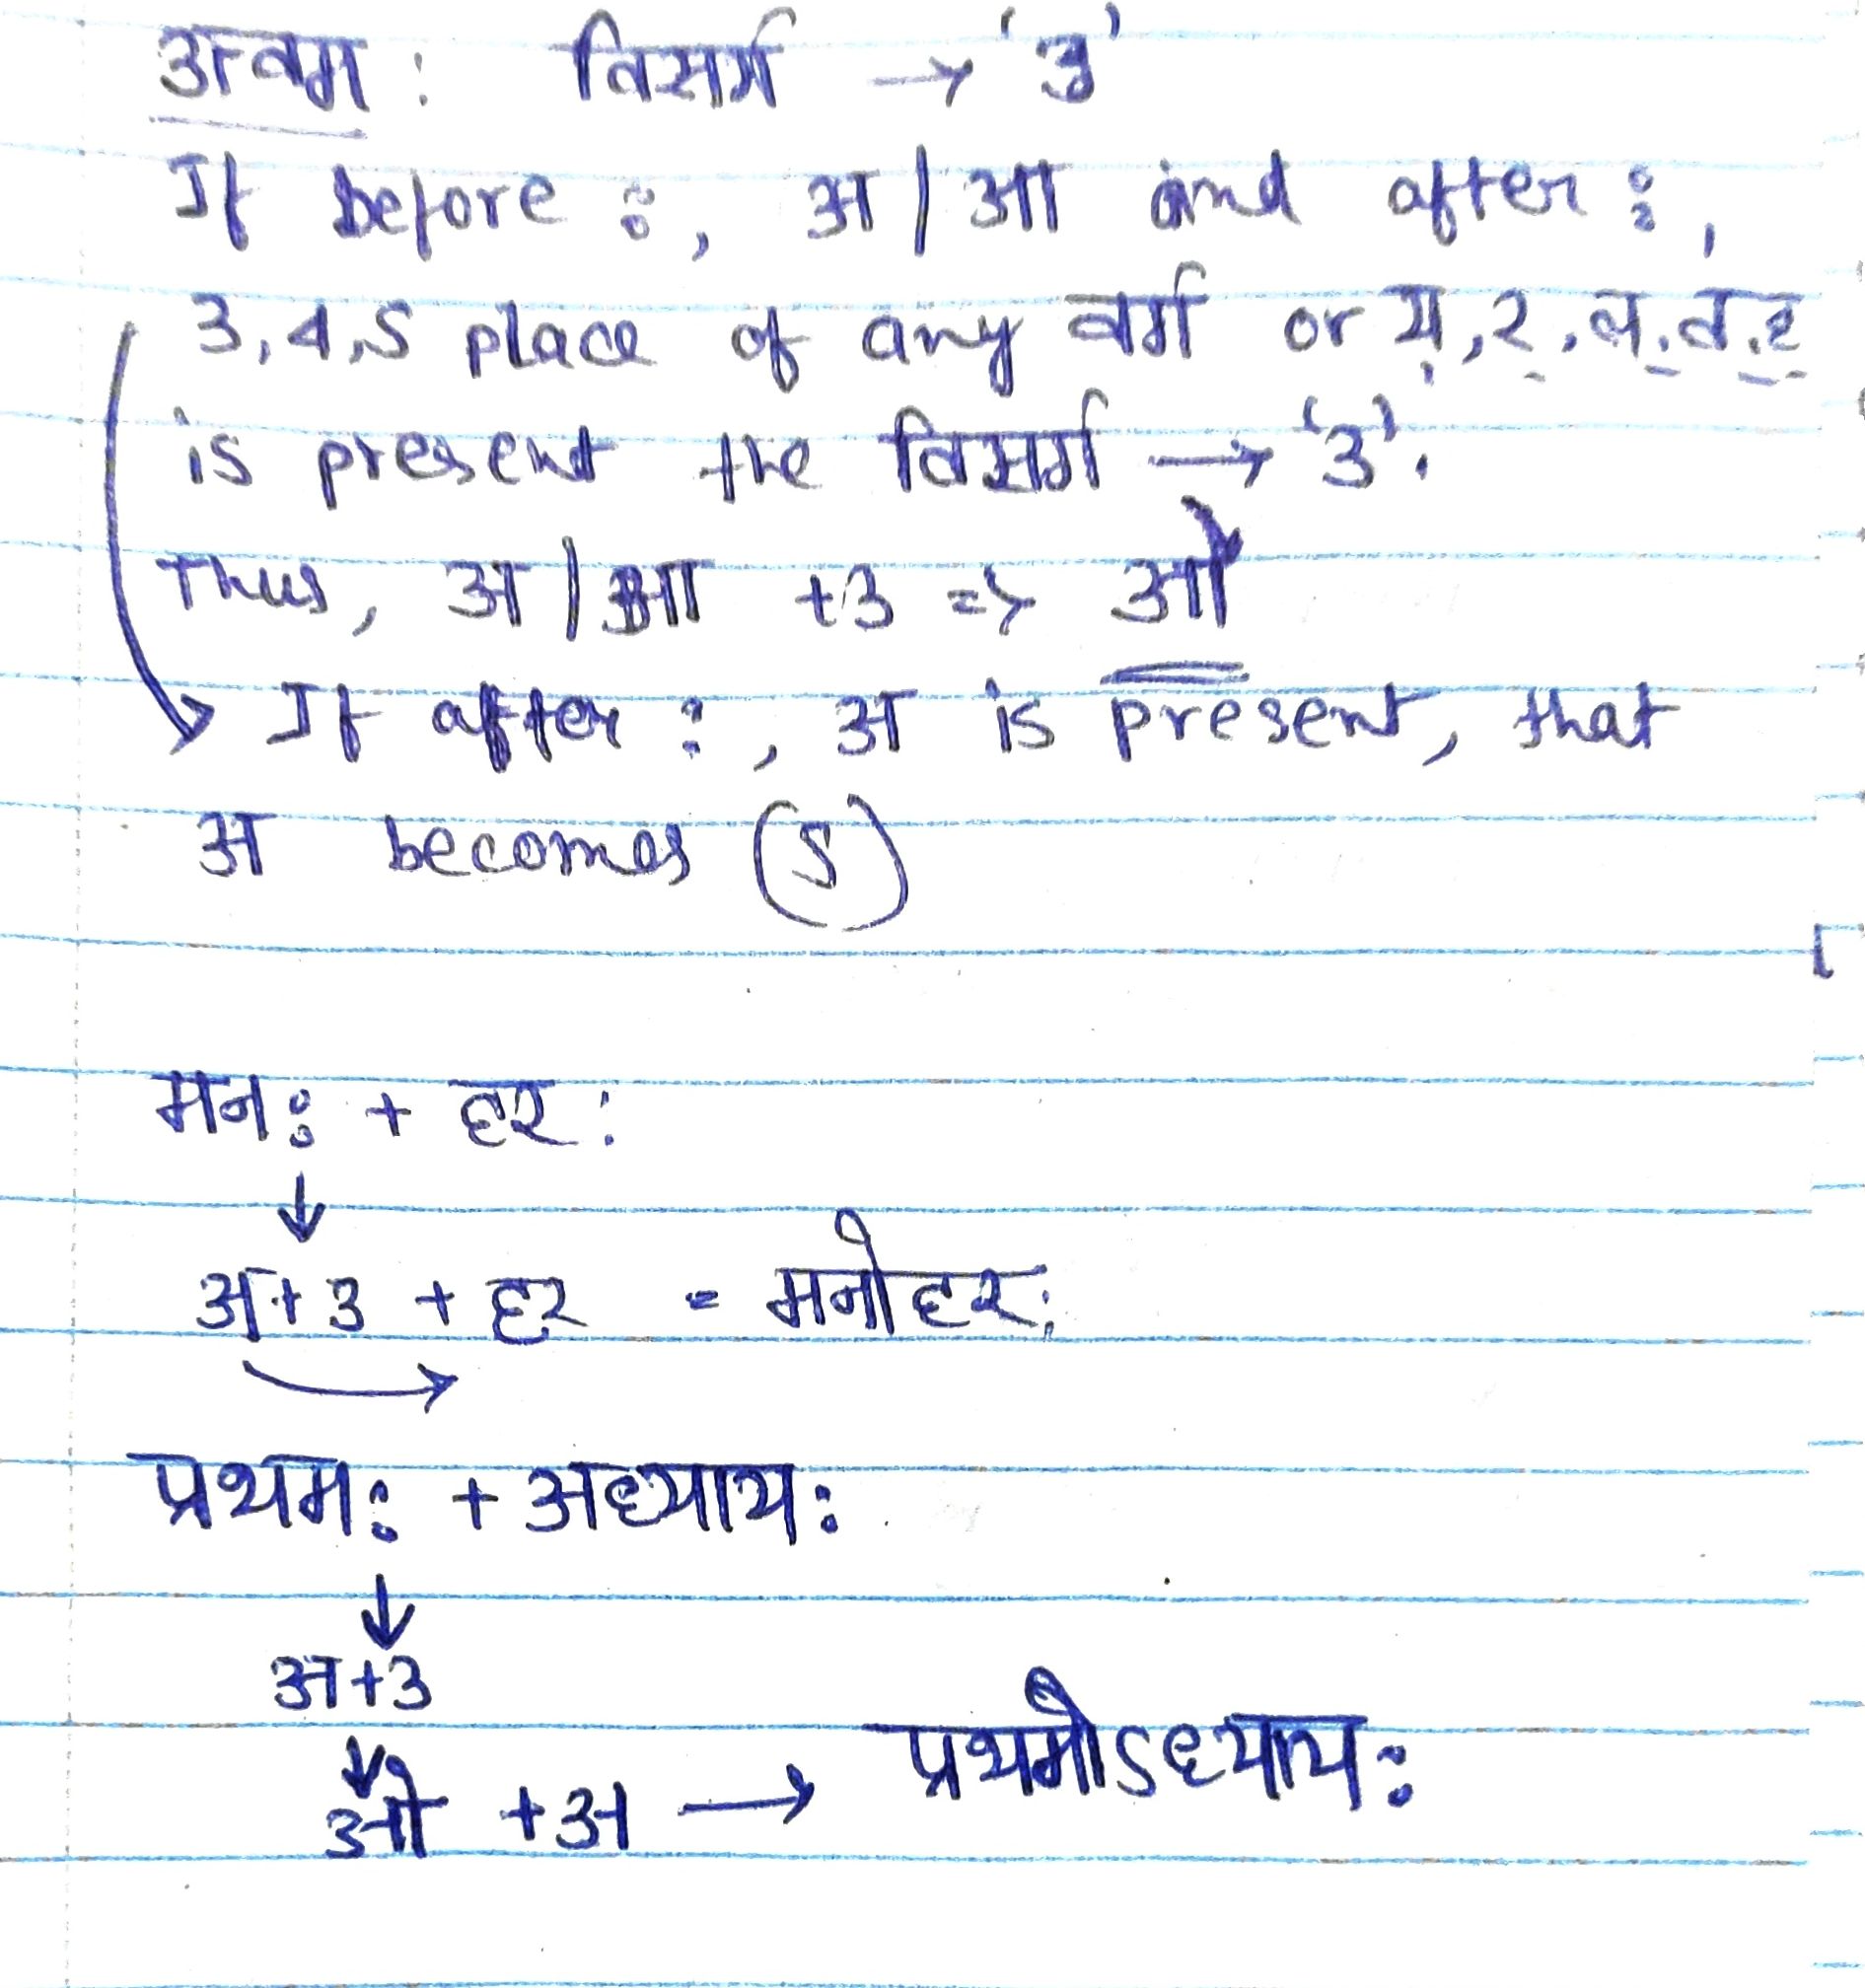 उत्वम : विसर्ग → 'उ'
If before :, अ | आ and after :,
3,4,5 place of any वर्ग or य्, र्, ल्, व्, ह्
is present the विसर्ग → 'उ'.
Thus, अ | आ + उ => ओ
If after :, अ is present, that
अ becomes (ऽ)
मनः + हरः
↓
अ + उ + हर = मनोहरः
प्रथमः + अध्यायः
↓
अ + उ
↓
ओ + अ → प्रथमोऽध्यायः